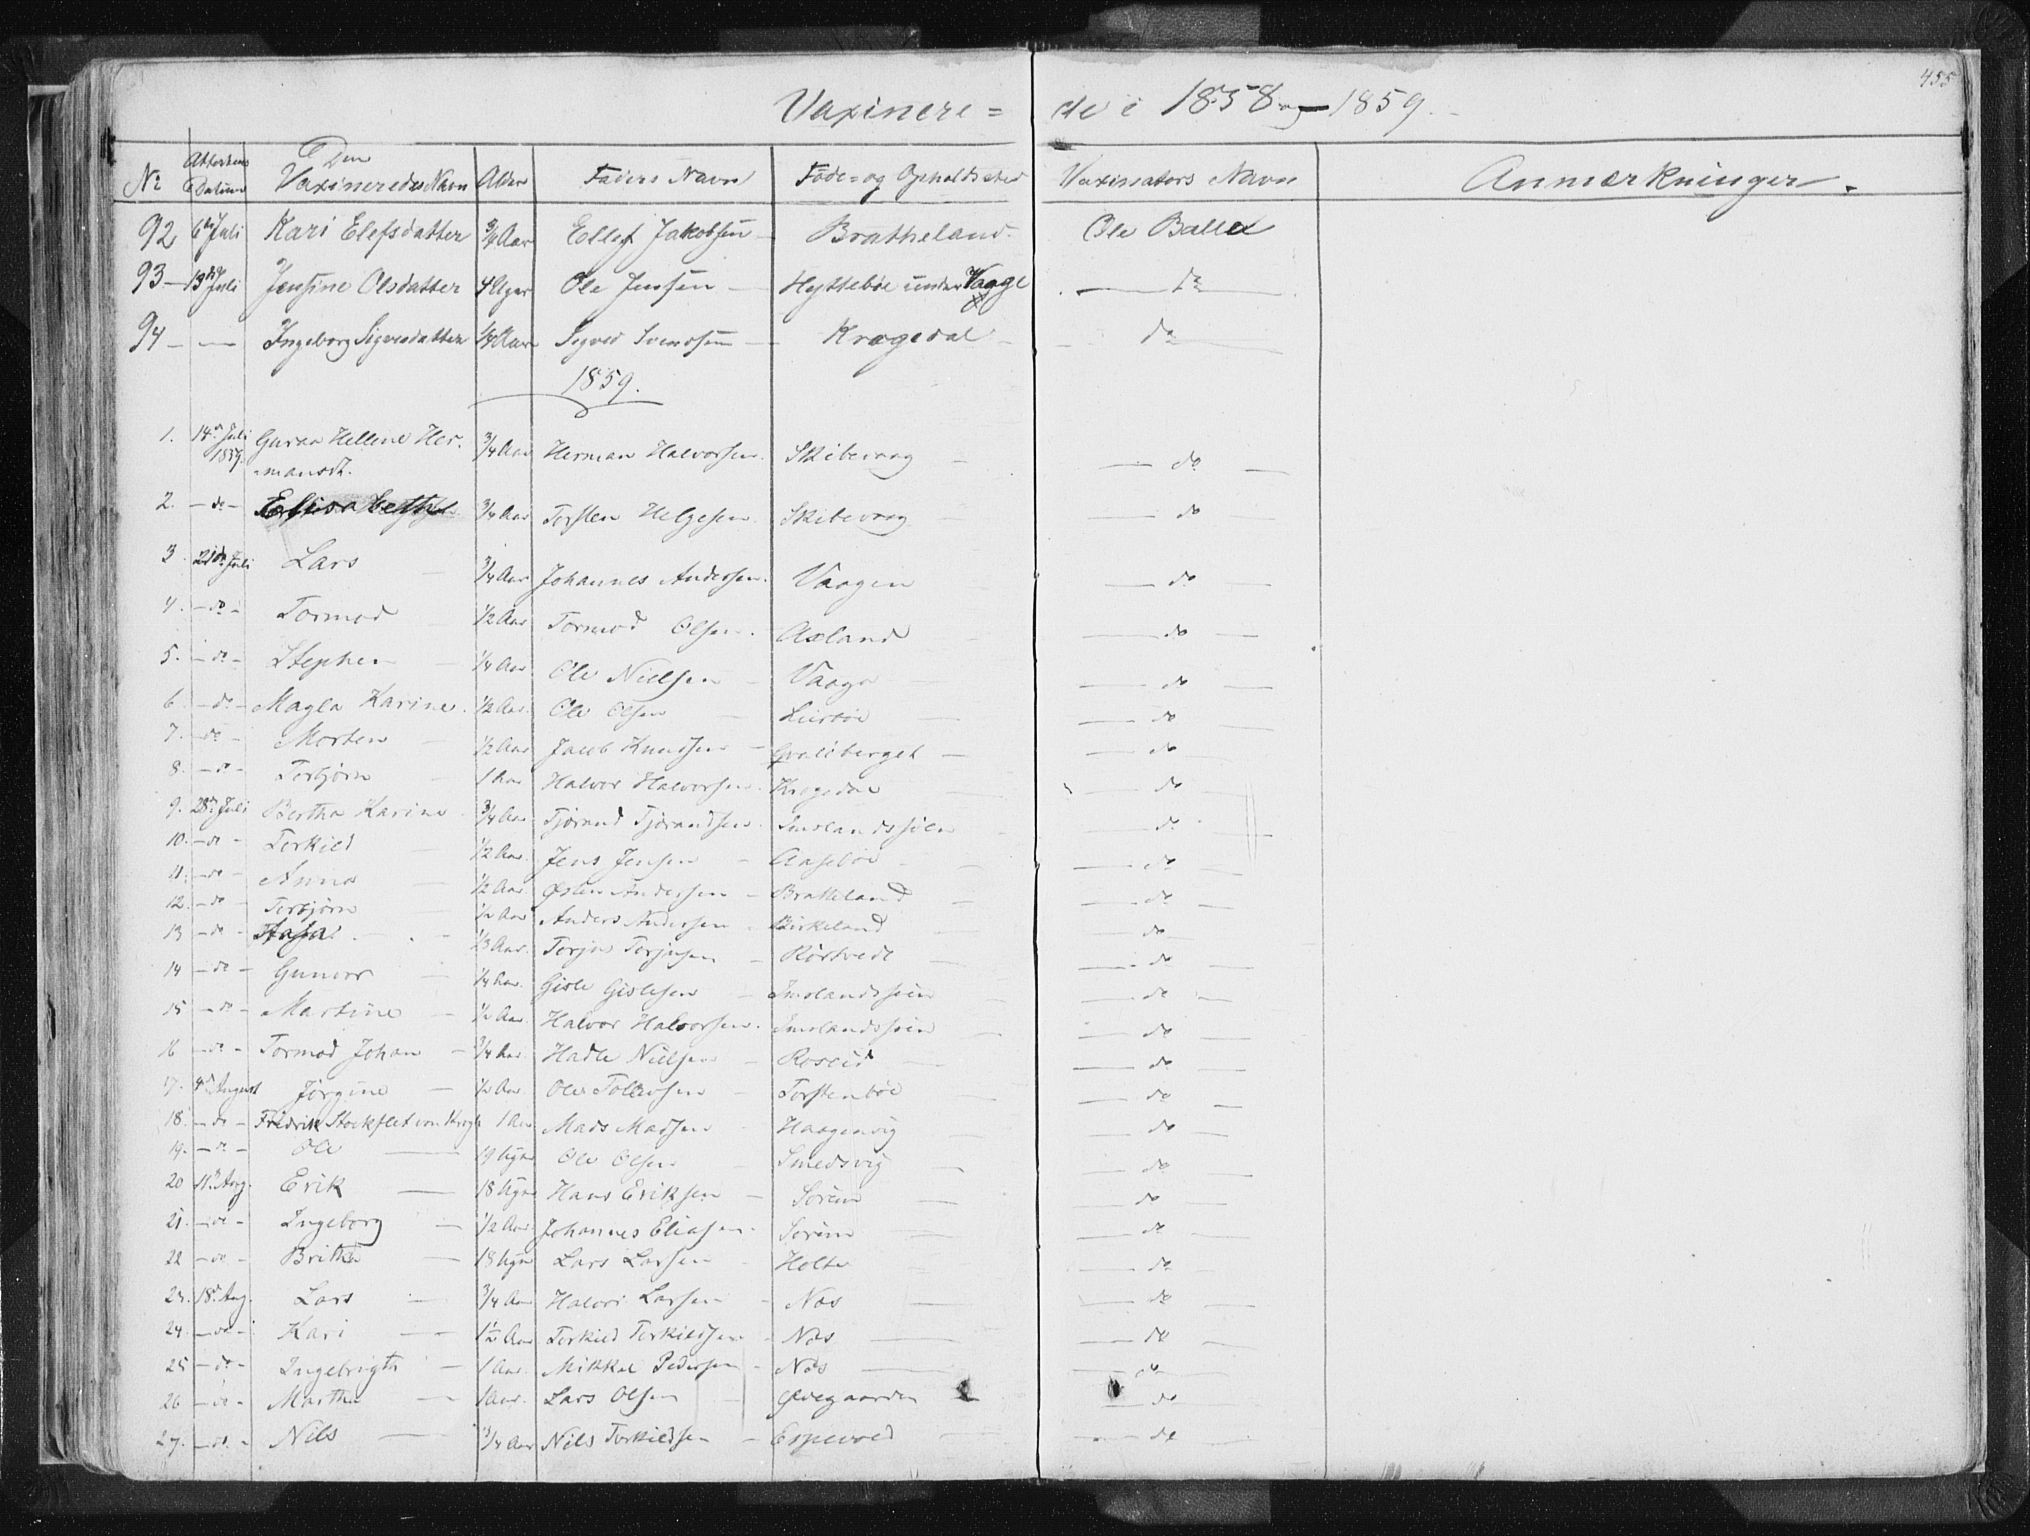 455
Vaxinere= de i 1858 og 1859.
No Attestens Datum Den Vaxineredes Navn Alder Faders Navn Føde= og Opholdssted Vaxinators Navn Anmærkninger.
92 6te Juli Kari Elefsdatter 3/4 Aar Ellef Jakobsen Bratheland Ole Balle
93 13de Juli Jensine Olsdatter 4 Uger Ole Jensen Hyttebøe under Vaage do
94 — Ingeborg Sigvedatter 1/4 Aar Sigved Svendsen Krogedal do
1859.
1. 14de Juli 1859. Hellene Her- 3/4 Aar Herman Halvorsen Skibevaag do
mansdt.
2. do Elisabeth 3/4 Aar Torsten Helgesen Skibevaag do
3. 21de Juli Lars 3/4 Aar Johannes Andersen Vaagen do
4. do Tormod 1/2 Aar Tormod Olsen Axland do
5. do Stephen 1/4 Aar Ole Nielsen Vaage do
6. do Magla Karine 1/2 Aar Ole Olsen do
7. do Morten 1/2 Aar Jacob Knudsen do
8. do Torbjørn 1 Aar Halvor Halvorsen Krogedal do
9. 28de Juli Bertha Karine 3/4 Aar Tjørand Tjørandsen Imslandssøen do
10. do Torkild 1/2 Aar Jens Jensen Aasebøe do
11. do Anna 1/2 Aar Østen Andersen Bratteland do
12. do Torbjørn 1/2 Aar Anders Andersen Birkeland do
13 do Aasa 1/3 Aar Torjus Torjusen Rørtvedt do
14 do Gunvor 1/4 Aar Gisle Gislesen Imslandssøen do
15 do Martine 1/2 Aar Halvor Halvorsen Imslandssøen do
16 do Tormod Johan 1/4 Aar Hadle Nielsen Roseid do
17. 4de August Jørgine 1/2 Aar Ole Tollevsen Torstenbøe do
18. do Fredrik Stockflet von Krogh 1 Aar Mads Madsen Haagenvig do
19. do Ole 19 Ugr Ole Olsen Smedsvig do
20 11te Aug. Erik 18 Ugr Hans Eriksen Søreim do
21. do Ingeborg 1/2 Aar Johannes Eliasen Søreim do
22 do Britha 18 Ugr Lars Larsen Holte do
23. 18de Aug. Lars 3/4 Aar Halvor Larsen Næs do
24. do Kari 1 1/2 Aar Torkild Torkildsen Næs do
25 do Ingebrigth 1 Aar Mikkel Pedersen Næs do
26 do Martha 1 Aar Lars Olsen Ødegaarden do
27. do Nils 3/4 Aar Nils Torkildsen Espevold do